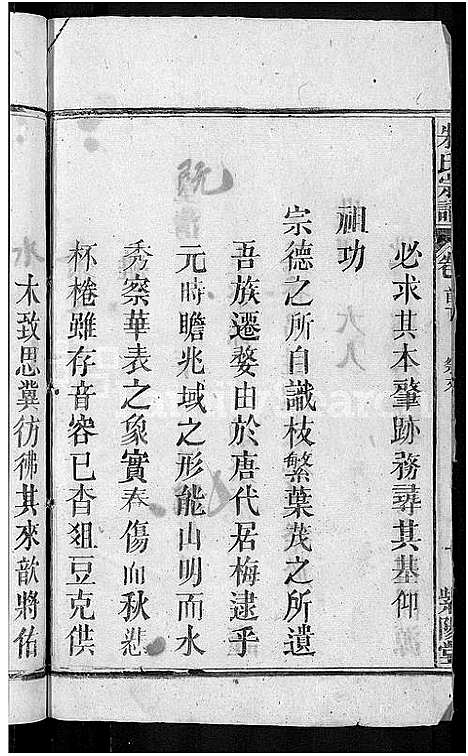 朱氏宗譜
卷首
紫陽堂
必求其本肇跡務尋其基仰
祖功
宗德之所自識枝繁葉茂之所遺
吾族遷婺由於唐代居梅逮乎
元時瞻兆域之形能山明而水
秀察華表之象實春傷而秋悲
杯棬雖存音容已杳俎豆克供
木致思冀彷彿其來歆將佑